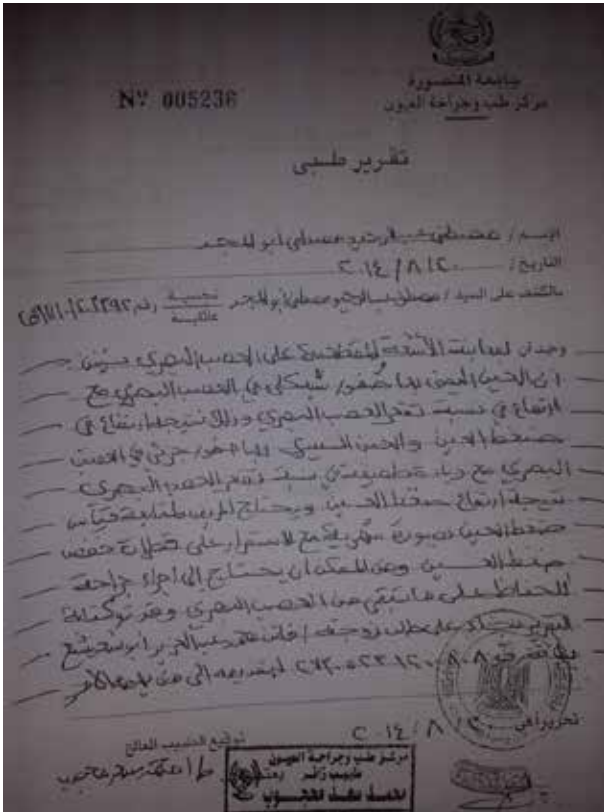 جامعة المنصورة
مركز طب وجراحة العيون
Nº 005236
تقرير طبى
الاسم / مصطفى عبد الرحيم مصطفى أبو المجد
التاريخ / ٢٠١٤/٨/٢٠
بالكشف على السيد / مصطفى عبد الرحيم مصطفى أبو المجد رقم
وجد ان لديه بالأشعة المقطعية على العصب البصري تبين
ان العين اليمنى بها ضمور شبه كلي في العصب البصري مع
ارتفاع في نسبة تقعر العصب البصري وذلك نتيجة ارتفاع في
ضغط العين والعين اليسرى بها ضمور جزئي في العصب
البصري مع زيادة طفيفة في نسبة تقعر العصب البصري
نتيجة ارتفاع ضغط العين ويحتاج المريض لمتابعة قياس
ضغط العين بصورة شهرية مع الاستمرار على قطرات خفض
ضغط العين ومن الممكن ان يحتاج إلى اجراء جراحة
للحفاظ على ما تبقى من العصب البصري وقد تم كتابة
التقرير بناء على طلب زوجته / محمد عبد العزيز ابو
بطاقة رقم لتقديمه الى من يهمه الأمر
تحريرا في ٢٠١٤/٨/٢٠
توقيع الطبيب المعالج
مركز طب وجراحة العيون
طبيب زائر
محمد سعد محجوب